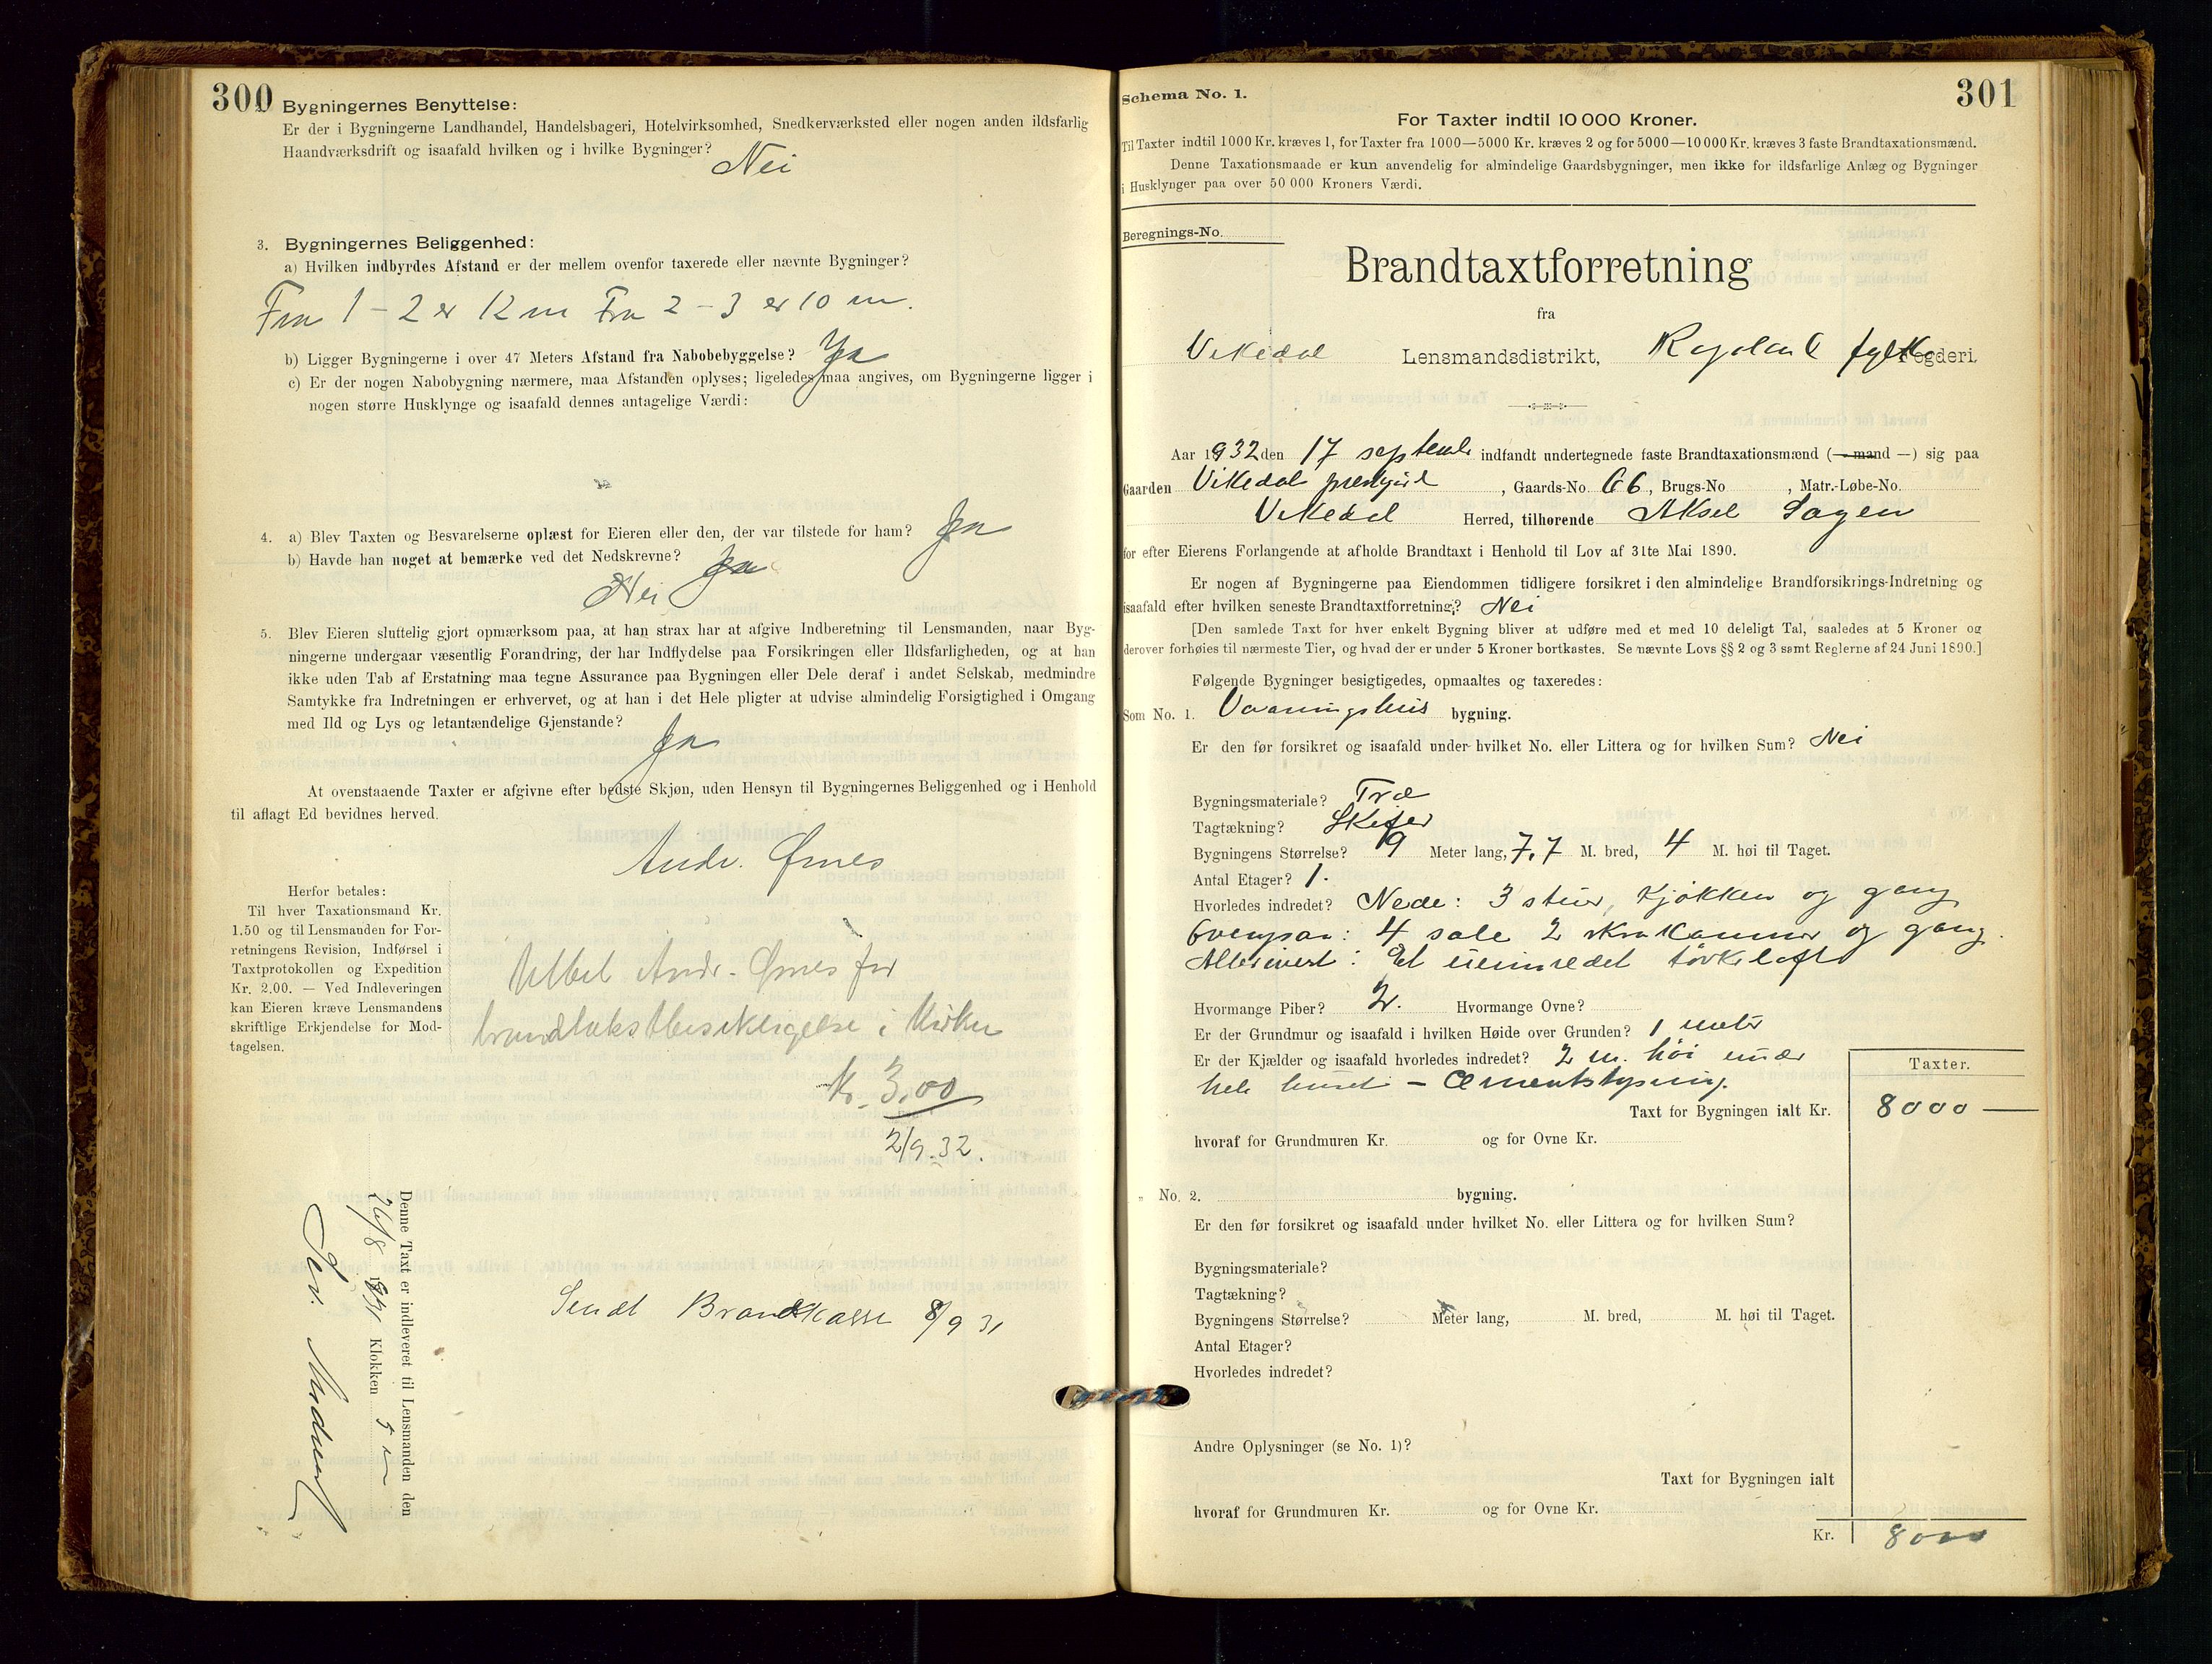 300
Bygningernes Benyttelse:
Er der i Bygningerne Landhandel, Handelsbageri, Hotelvirksomhed, Snedkerværksted eller nogen anden ildsfarlig
Haandværksdrift og isaafald hvilken og i hvilke Bygninger? Nei
3. Bygningernes Beliggenhed:
a) Hvilken indbyrdes Afstand er der mellem ovenfor taxerede eller nævnte Bygninger?
Fra 1 - 2 er 12 m Fra 2 - 3 er 10 m.
b) Ligger Bygningerne i over 47 Meters Afstand fra Nabobebyggelse? Ja
c) Er der nogen Nabobygning nærmere, maa Afstanden oplyses; ligeledes maa angives, om Bygningerne ligger i
nogen større Husklynge og isaafald dennes antagelige Værdi:
4. a) Blev Taxten og Besvarelserne oplæst for Eieren eller den, der var tilstede for ham? Ja
b) Havde han noget at bemærke ved det Nedskrevne? Ja
Nei
5. Blev Eieren sluttelig gjort opmærksom paa, at han strax har at afgive Indberetning til Lensmanden, naar Byg-
ningerne undergaar væsentlig Forandring, der har Indflydelse paa Forsikringen eller Ildsfarligheden, og at han
ikke uden Tab af Erstatning maa tegne Assurance paa Bygningen eller Dele deraf i andet Selskab, medmindre
Samtykke fra Indretningen er erhvervet, og at han i det Hele pligter at udvise almindelig Forsigtighed i Omgang
med Ild og Lys og letantændelige Gjenstande?
Ja
At ovenstaaende Taxter er afgivne efter bedste Skjøn, uden Hensyn til Bygningernes Beliggenhed og i Henhold
til aflagt Ed bevidnes herved.
Andr. Ørnes
Herfor betales:
Til hver Taxationsmand Kr.
1.50 og til Lensmanden for For-
retningens Revision, Indførsel i
Taxtprotokollen og Expedition
Kr. 2.00. — Ved Indleveringen
kan Eieren kræve Lensmandens
skriftlige Erkjendelse for Mod-
tagelsen.
Utbet Andr. Ørnes for
i Kirken
Kr. 3,00
2/9.32.
Denne Taxt er indleveret til Lensmanden den
26/8 1931 Klokken
Sendt Brandkasse 8/9 31
301
Schema No. 1.
For Taxter indtil 10 000 Kroner.
Til Taxter indtil 1000 Kr. kræves 1, for Taxter fra 1000—5000 Kr. kræves 2 og for 5000—10 000 Kr. kræves 3 faste Brandtaxationsmænd.
Denne Taxationsmaade er kun anvendelig for almindelige Gaardsbygninger, men ikke for ildsfarlige Anlæg og Bygninger
i Husklynger paa over 50 000 Kroners Værdi.
Beregnings-No.
Brandtaxtforretning
fra
Vikedal Lensmandsdistrikt, Rogaland fylke Fogderi
Aar 1932 den 17 septembr indfandt undertegnede faste Brandtaxationsmænd (—mand —) sig paa
Gaarden Vikedal prestgård, Gaards-No. 66, Brugs-No , Matr.-Løbe-No.
Vikedal Herred, tilhørende Aksel Sagen
for efter Eierens Forlangende at afholde Brandtaxt i Henhold til Lov af 31te Mai 1890.
Er nogen af Bygningerne paa Eiendommen tidligere forsikret i den almindelige Brandforsikrings-Indretning og
isaafald efter hvilken seneste Brandtaxtforretning? Nei
[Den samlede Taxt for hver enkelt Bygning bliver at udføre med et med 10 deleligt Tal, saaledes at 5 Kroner og
derover forhøies til nærmeste Tier, og hvad der er under 5 Kroner bortkastes. Se nævnte Lovs §§ 2 og 3 samt Reglerne af 24 Juni 1890.]
Følgende Bygninger besigtigedes, opmaaltes og taxeredes:
Som No. 1. Vaaningshus bygning.
Er den før forsikret og isaafald under hvilket No. eller Littera og for hvilken Sum? Nei
Bygningsmateriale? Træ
Tagtækning? Skifer
Bygningens Størrelse? 9 Meter lang, 7,7 M. bred, 4 M. høi til Taget.
Antal Etager? 1.
Hvorledes indredet? Nede: 3 stuer, kjøkken og gang
Ovenpaa: 4 sale 2 skrakammer og gang.
Alleriverst: Et uinnredet tørkeloft
Hvormange Piber? 2. Hvormange Ovne?
Er der Grundmur og isaafald i hvilken Høide over Grunden? 1 meter
Er der Kjælder og isaafald hvorledes indredet? 2 m. høi under
hele huset - Cementstøpning.
Taxter.
Taxt for Bygningen ialt Kr. 8000 —
hvoraf for Grundmuren Kr. og for Ovne Kr.
" No. 2. bygning.
Er den før forsikret og isaafald under hvilket No. eller Littera og for hvilken Sum?
Bygningsmateriale?
Tagtækning?
Bygningens Størrelse? Meter lang, M. bred, M. høi til Taget.
Antal Etager?
Hvorledes indredet?
Andre Oplysninger (se No. 1)?
Taxt for Bygningen ialt
hvoraf for Grundmuren Kr. og for Ovne Kr.
Kr. 8000